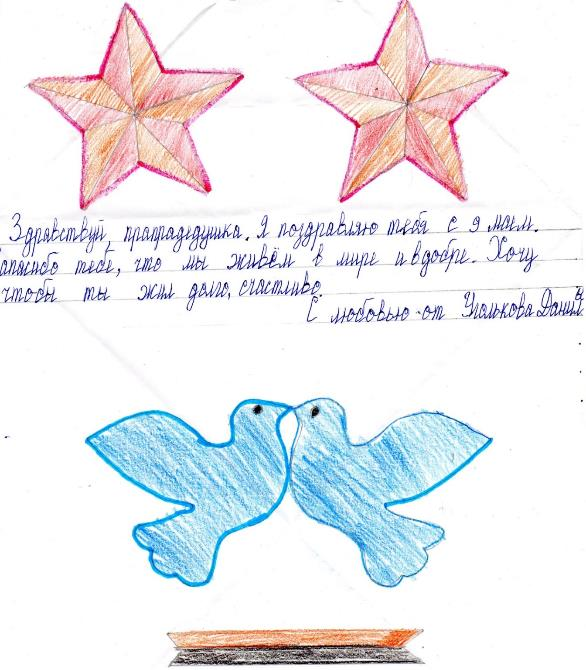 Здравствуй, прапрадедушка. Я поздравляю тебя с 9 маем.
спасибо тебе, что мы живём в мире и в добре. Хочу
чтобы ты жил долго, счастливо.
С любовью от Уголькова Данил